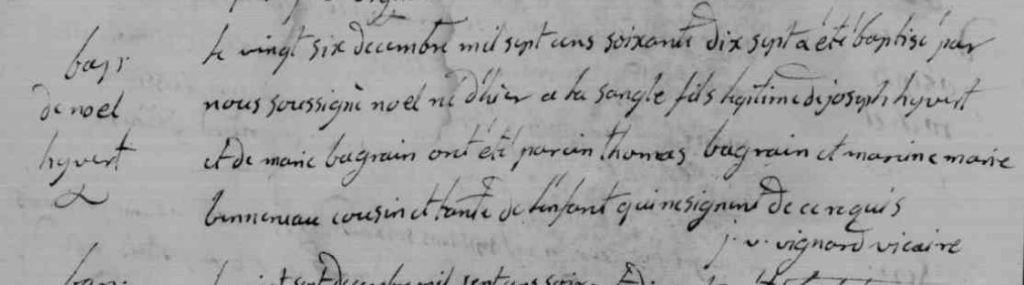 bap:
de noel
hyvert
le vingt six decembre mil sept cens soixante dix sept a été baptisé par
nous soussigné noel né d'hier a la sangle fils legitime de joseph hyvert
et de marie bagrain ont été parain thomas bagrain et maraine marie
bennereau cousin et tante de l'enfant qui ne signent de ce requis
j. v. vignard vicaire
bap:
le vingt sept decembre mil sept cens soix